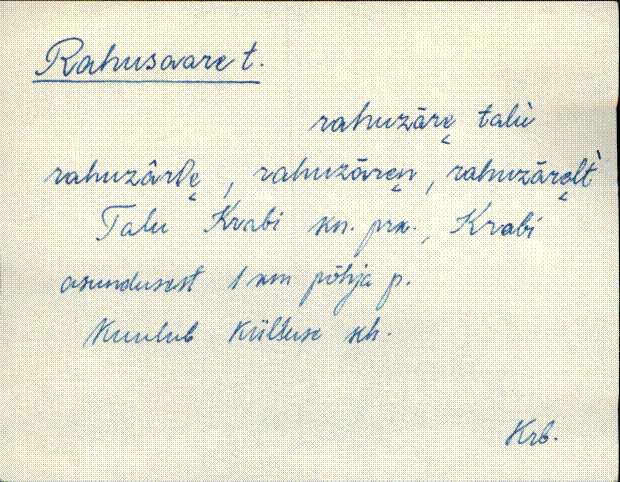 Rahusaare t.
rahuzārę talù
rahuzârDę, rahuzāręn, rahuzāręlt̀
Talu Krabi kn. prk., Krabi
asundusest 1 km põhja p.
Kuulub Külžuse kh.
Krb.